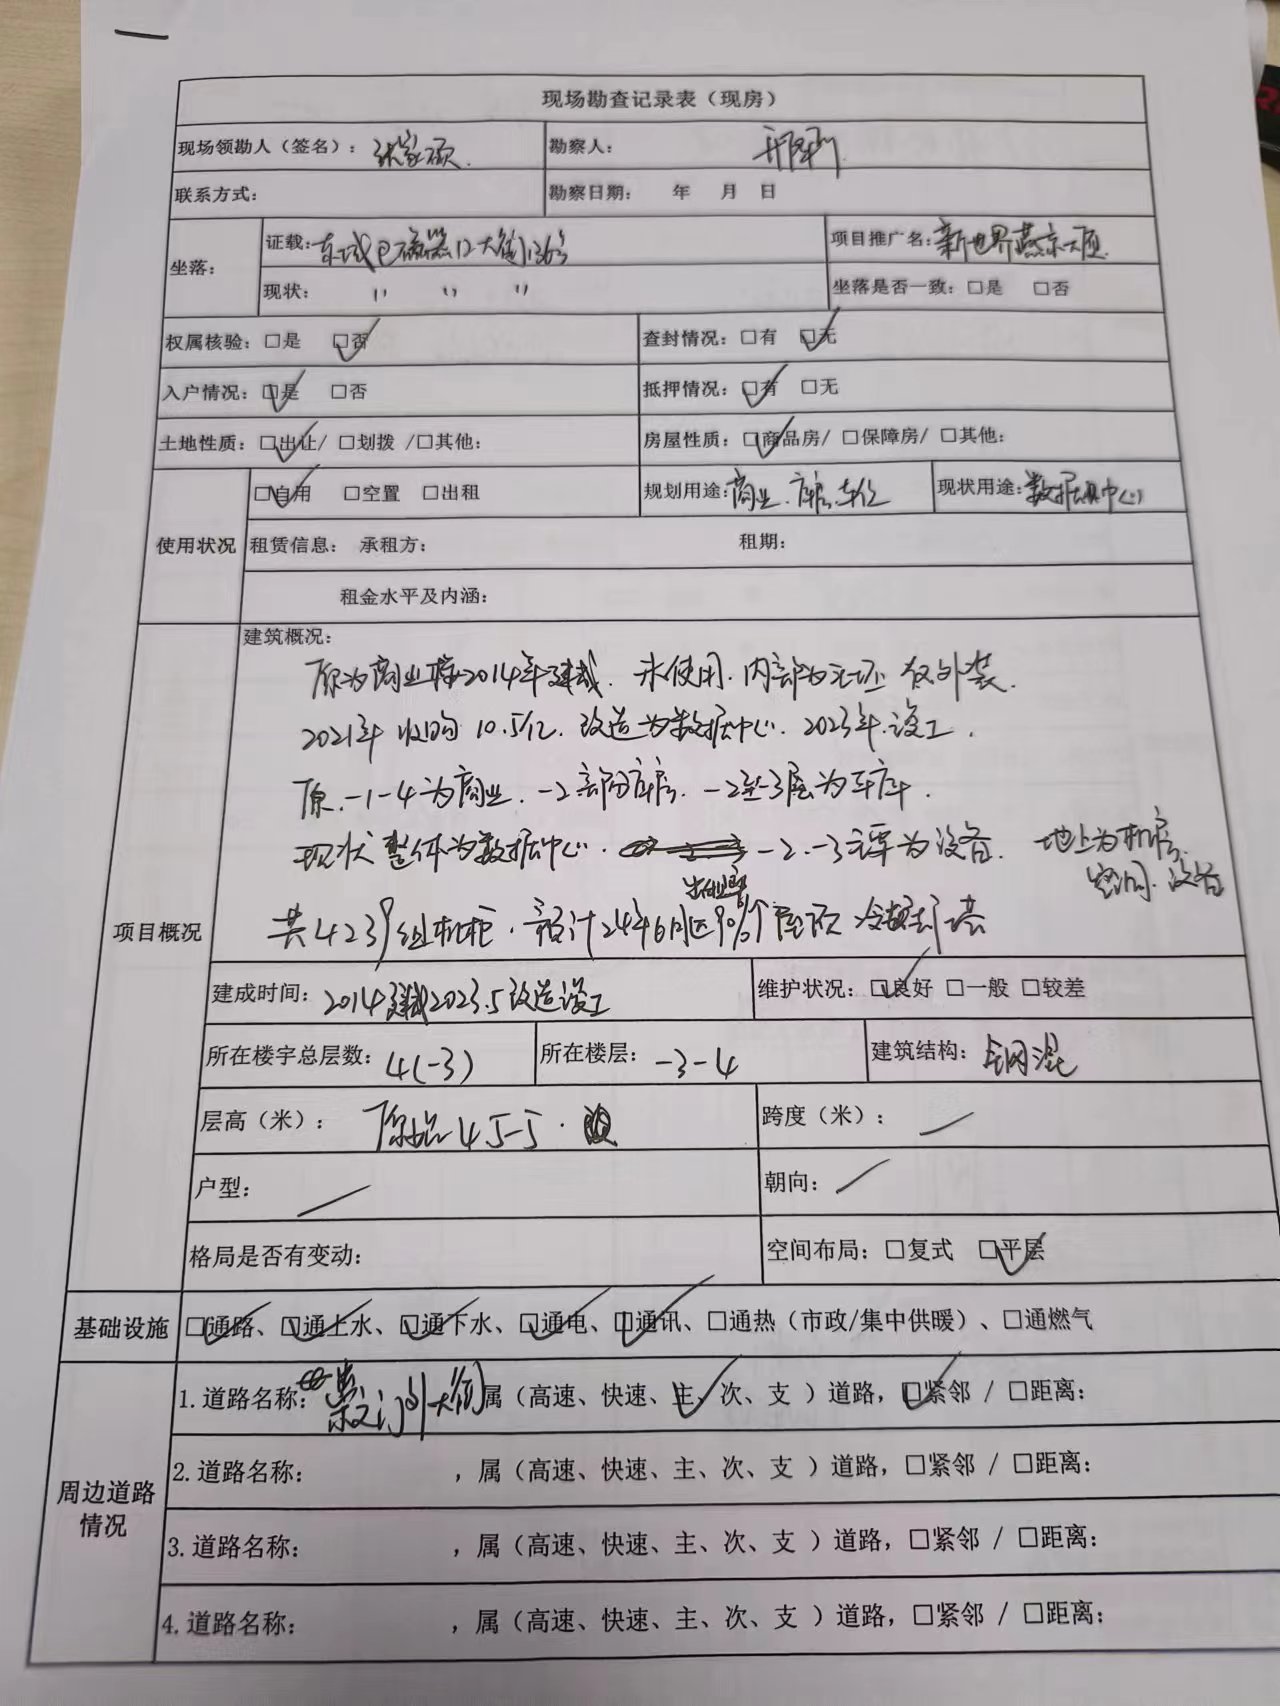 现场勘查记录表（现房）
现场领勘人（签名）：张家硕 勘察人：
联系方式： 勘察日期： 年 月 日
坐落： 证载：东城区磁器口大街136号 项目推广名：新世界燕京大厦
现状： 〃 〃 〃 坐落是否一致：□是 □否
权属核验：□是 □否 查封情况：□有 □无
入户情况：□是 □否 抵押情况：□有 □无
土地性质：□出让/ □划拨 /□其他： 房屋性质：□商品房/ □保障房/ □其他：
使用状况 □自用 □空置 □出租 规划用途：商业、库房、车位 现状用途：数据中心
租赁信息： 承租方： 租期：
租金水平及内涵：
项目概况 建筑概况：
原为商业楼2014年建成．未使用．内部为毛坯 仅外装．
2021年收购 10.5亿．改造为数据中心．2023年竣工．
原．-1-4为商业．-2部分库房．-2至-3层为车库．
现状整体为数据中心． -2.-3主要为设备．地上为机房．
空间．设备
出租率
共4239组机柜．预计24年6月达90%个 屋顶 冷却塔
建成时间：2014建成2023.5改造竣工 维护状况：□良好 □一般 □较差
所在楼宇总层数：4(-3) 所在楼层：-3-4 建筑结构：钢混
层高（米）： 4.5-5． 跨度（米）：／
户型：／ 朝向：／
格局是否有变动： 空间布局：□复式 □平层
基础设施 □通路、□通上水、□通下水、□通电、□通讯、□通热（市政/集中供暖）、□通燃气
周边道路情况 1.道路名称：崇文门外大街 属（高速、快速、主、次、支 ）道路，□紧邻 / □距离：
2.道路名称： ，属（高速、快速、主、次、支 ）道路，□紧邻 / □距离：
3.道路名称： ，属（高速、快速、主、次、支 ）道路，□紧邻 / □距离：
4.道路名称： ，属（高速、快速、主、次、支 ）道路，□紧邻 / □距离：